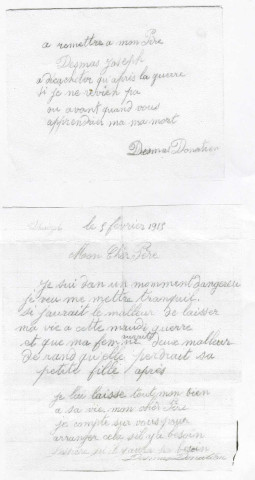 a remettre a mon Père
Desmas Joseph
a decacheter qu'après la guerre
si je ne revien pa
ou avant quand vous
apprendrier ma mort
Desmas Donatien
le 5 fevrier 1915
Mon Cher Père
Je sui dan un monment dangereu
je veu me mettre tranquil.
si j'aurait le malleur de laisser
ma vie a cette maudi guerre
et que ma femme deux malleur
de rand qu'elle perdrait sa
petite fille après
je lui laisse tout mon bien
a sa vie mon cher Père
je compte sur vous pour
arranger cela sil y a besoin